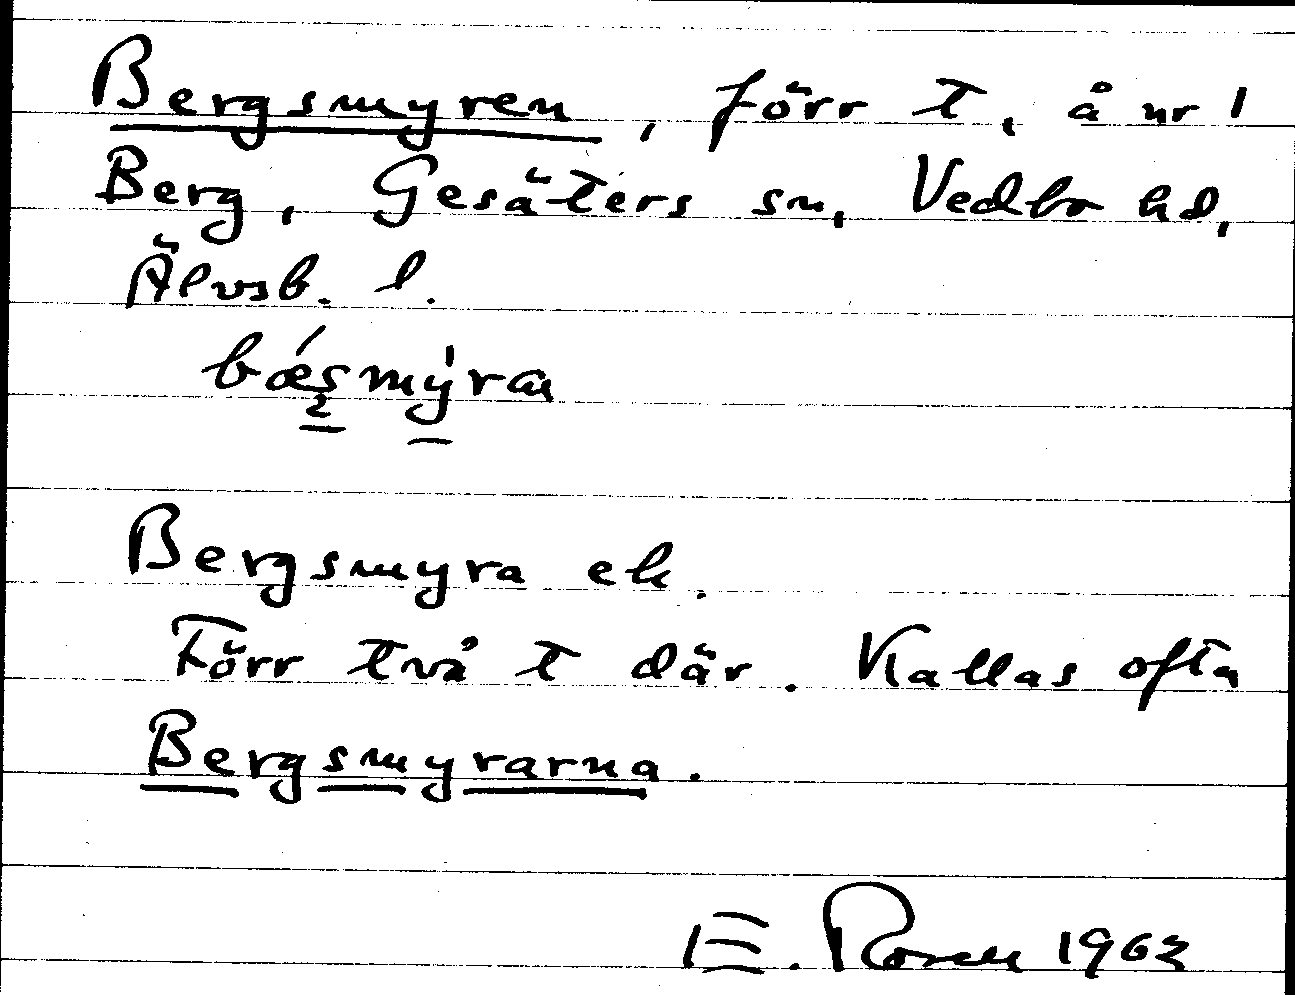 Bergsmyren, förr t, å nr 1
Berg, Gesäters sn, Vedbo hd,
Älvsb. l.
bæ´smy̍ra
Bergsmyra ek.
Förr två t där. Kallas ofta
Bergsmyrarna.
E. Rosell 1963